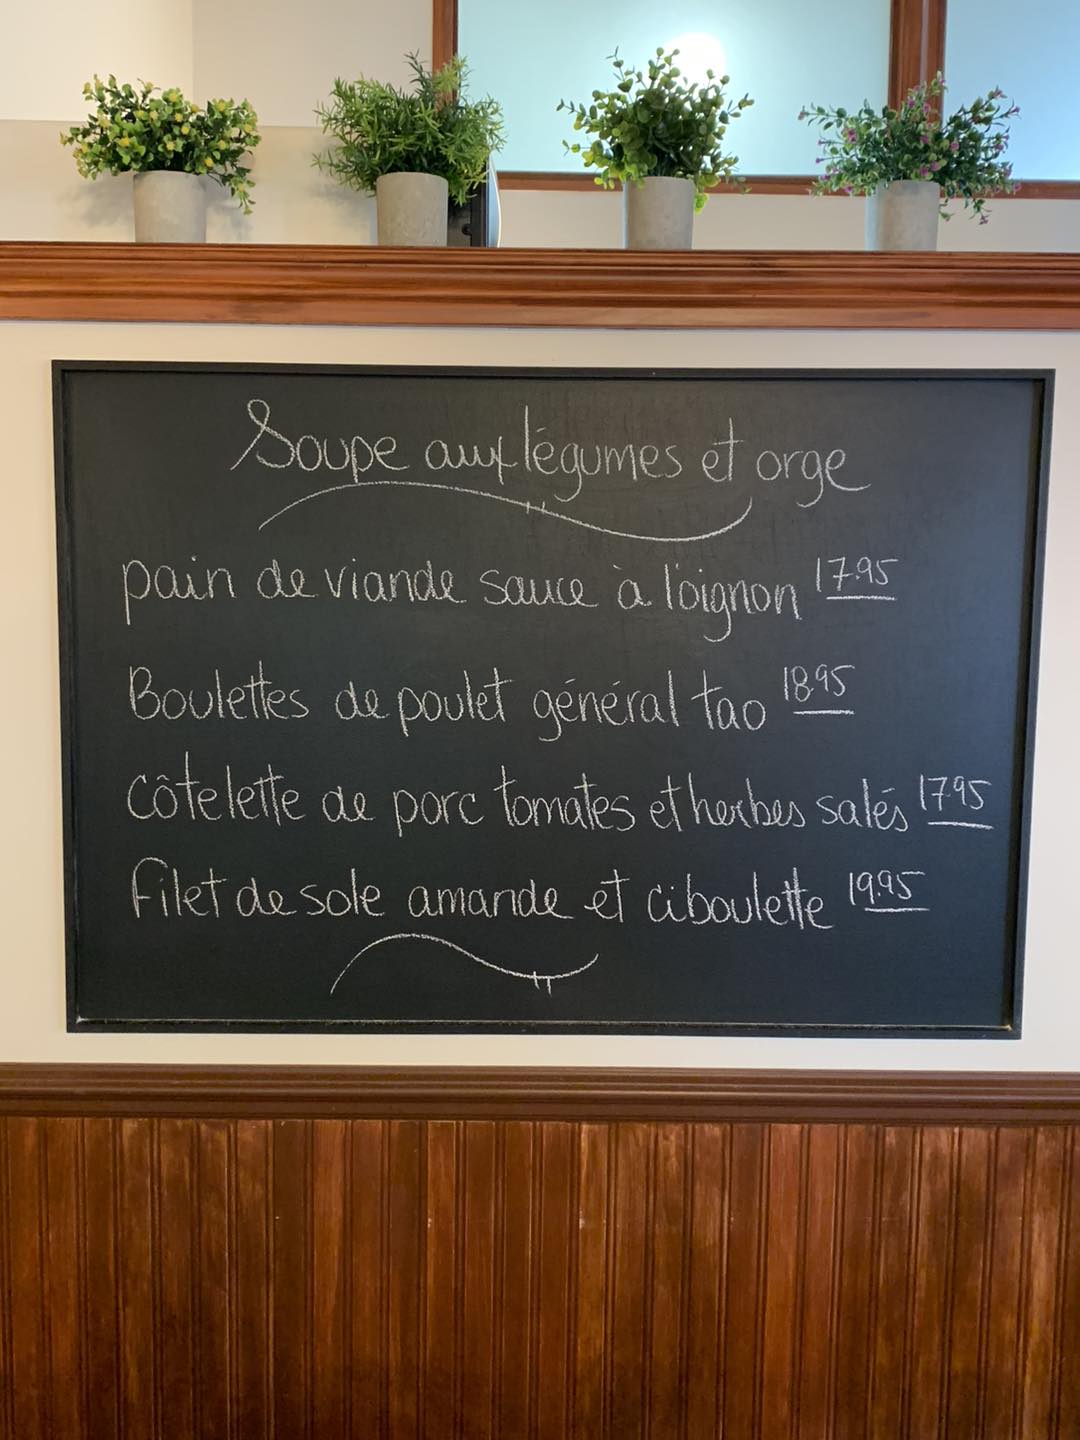 Soupe aux légumes et orge
pain de viande sauce à l'oignon 17.95
Boulettes de poulet général tao 18.95
côtelette de porc tomates et herbes salés 17.95
Filet de sole amande et ciboulette 19.95